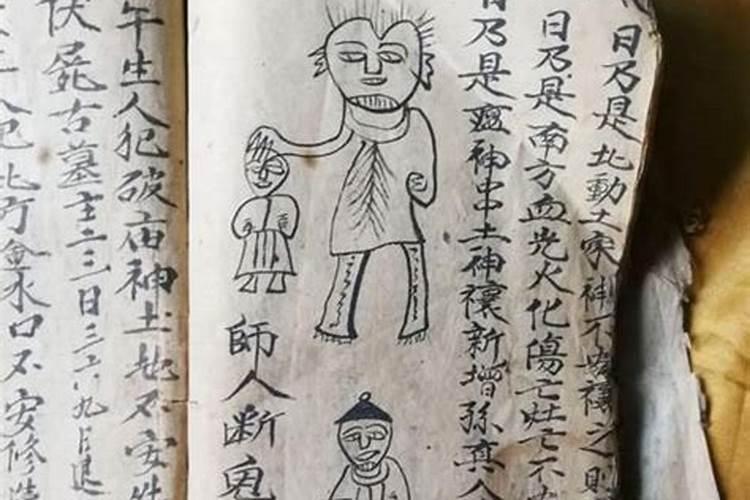 日乃是北動土家神不安禳之則
日乃是南方血光火化傷亡灶亡不
日乃是瘟神串土神禳新增孫真人
師人断鬼
午生人犯破庙神土地不安
伏屍古墓主二三日三六九月退
人犯北方金水口不安修